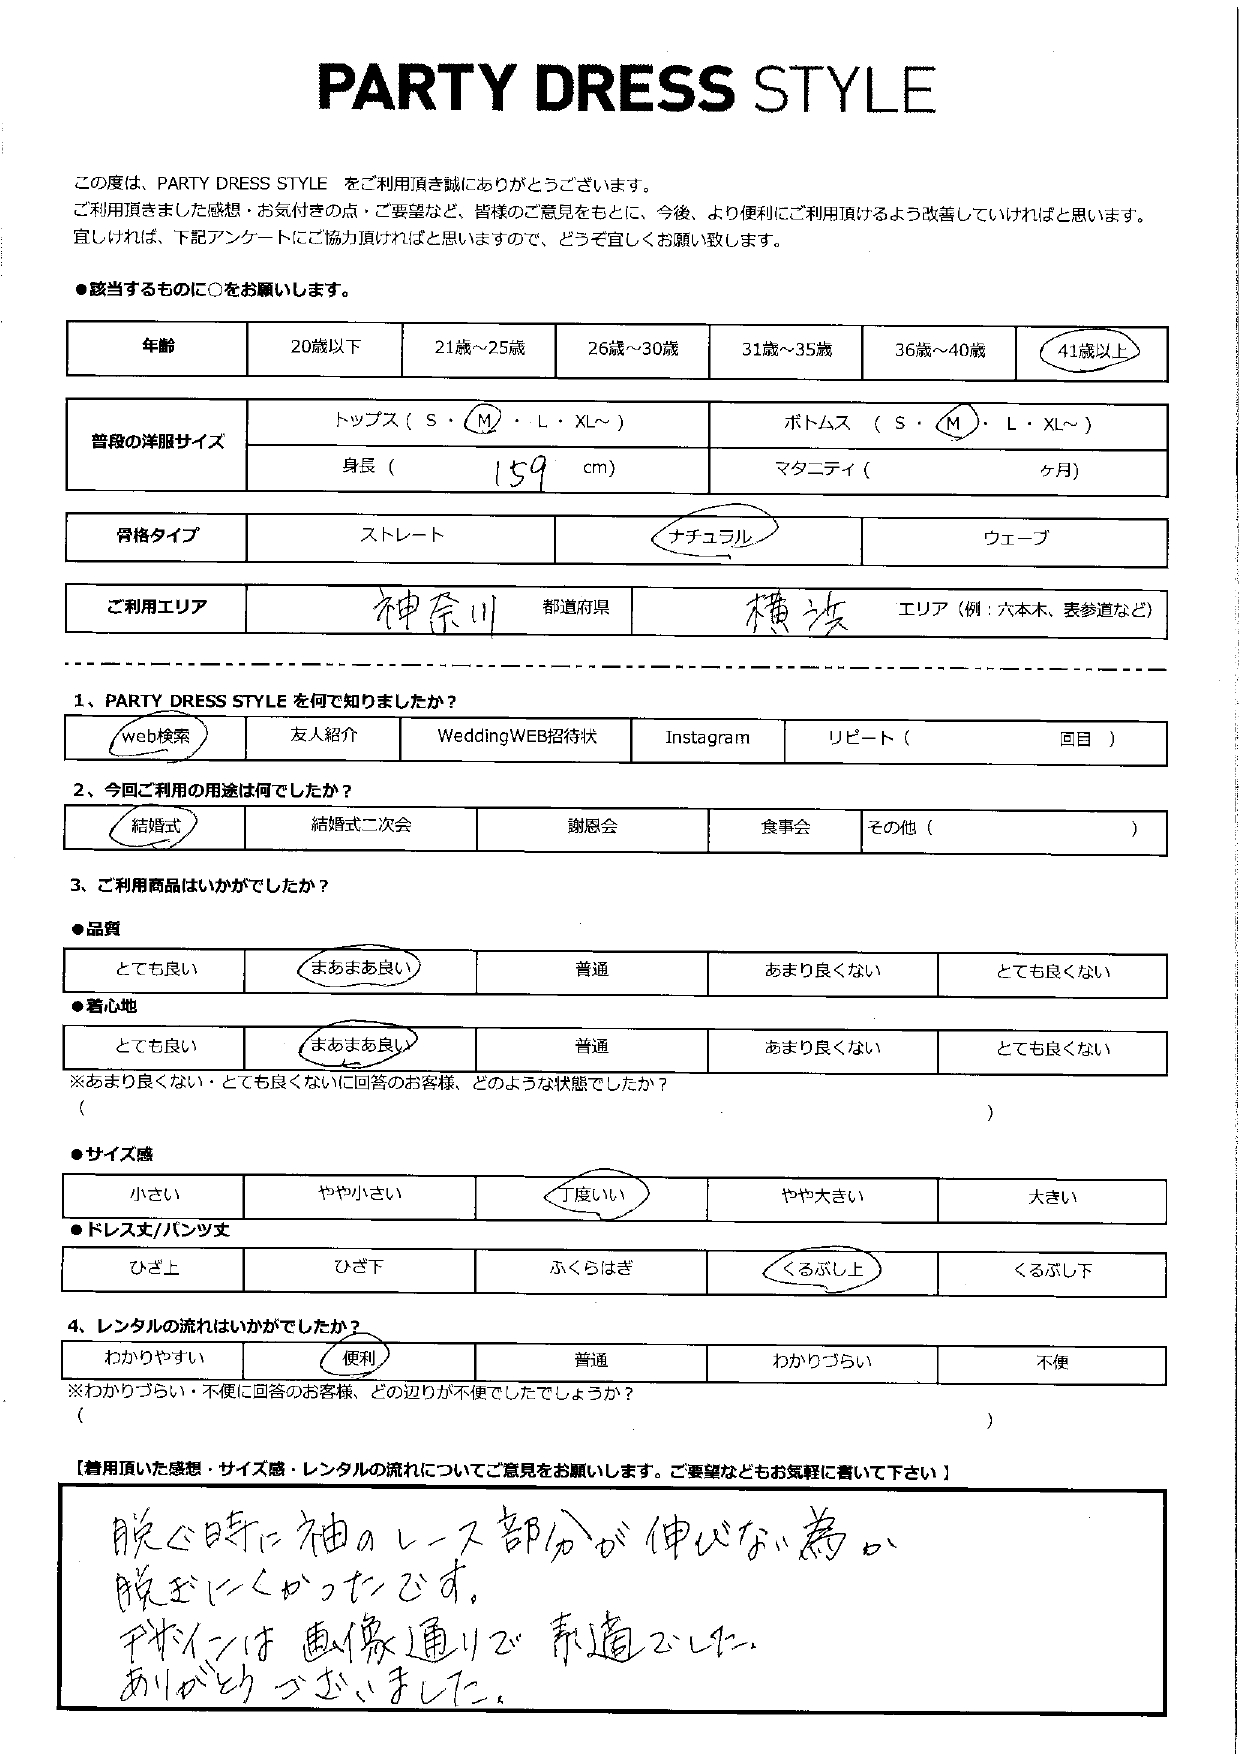 PARTY DRESS STYLE
この度は、PARTY DRESS STYLE をご利用頂き誠にありがとうございます。
ご利用頂きました感想・お気付きの点・ご要望など、皆様のご意見をもとに、今後、より便利にご利用頂けるよう改善していければと思います。
宜しければ、下記アンケートにご協力頂ければと思いますので、どうぞ宜しくお願い致します。
●該当するものに○をお願いします。
年齢 20歳以下 21歳～25歳 26歳～30歳 31歳～35歳 36歳～40歳 41歳以上
普段の洋服サイズ トップス ( S ・ M ・ L ・ XL～ ) ボトムス ( S ・ M ・ L ・ XL～ )
身長 ( 159 cm) マタニティ ( ヶ月)
骨格タイプ ストレート ナチュラル ウェーブ
ご利用エリア 神奈川 都道府県 横浜 エリア（例：六本木、表参道など）
1、PARTY DRESS STYLE を何で知りましたか？
web検索 友人紹介 WeddingWEB招待状 Instagram リピート ( 回目 )
2、今回ご利用の用途は何でしたか？
結婚式 結婚式二次会 謝恩会 食事会 その他 ( )
3、ご利用商品はいかがでしたか？
●品質
とても良い まあまあ良い 普通 あまり良くない とても良くない
●着心地
とても良い まあまあ良い 普通 あまり良くない とても良くない
※あまり良くない・とても良くないに回答のお客様、どのような状態でしたか？
( )
●サイズ感
小さい やや小さい 丁度いい やや大きい 大きい
●ドレス丈/パンツ丈
ひざ上 ひざ下 ふくらはぎ くるぶし上 くるぶし下
4、レンタルの流れはいかがでしたか？
わかりやすい 便利 普通 わかりづらい 不便
※わかりづらい・不便に回答のお客様、どの辺りが不便でしたでしょうか？
( )
【着用頂いた感想・サイズ感・レンタルの流れについてご意見をお願いします。ご要望などもお気軽に書いて下さい】
脱ぐ時に袖のレース部分が伸びない為か
脱ぎにくかったです。
デザインは画像通りで素適でした。
ありがとうございました。